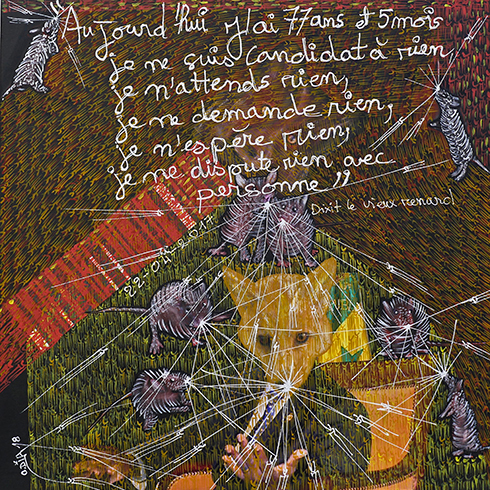 Aujourd'hui j'ai 77 ans et 5 mois
je ne suis candidat à rien,
je n'attends rien,
je ne demande rien,
je n'espère rien,
je ne dispute rien avec
personne"
Dixit le vieux renard
22-04-2017